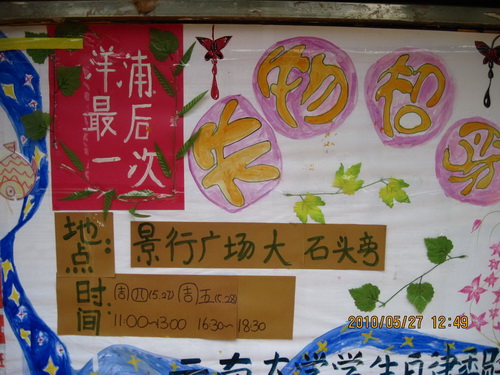 洋浦
最后
一次
失物招
地点: 景行广场大石头旁
时间: (周四)5.27 (周五)5.28
11:00~13:00 16:30~18:30
2010/05/27 12:49
云南大学学生自律委员